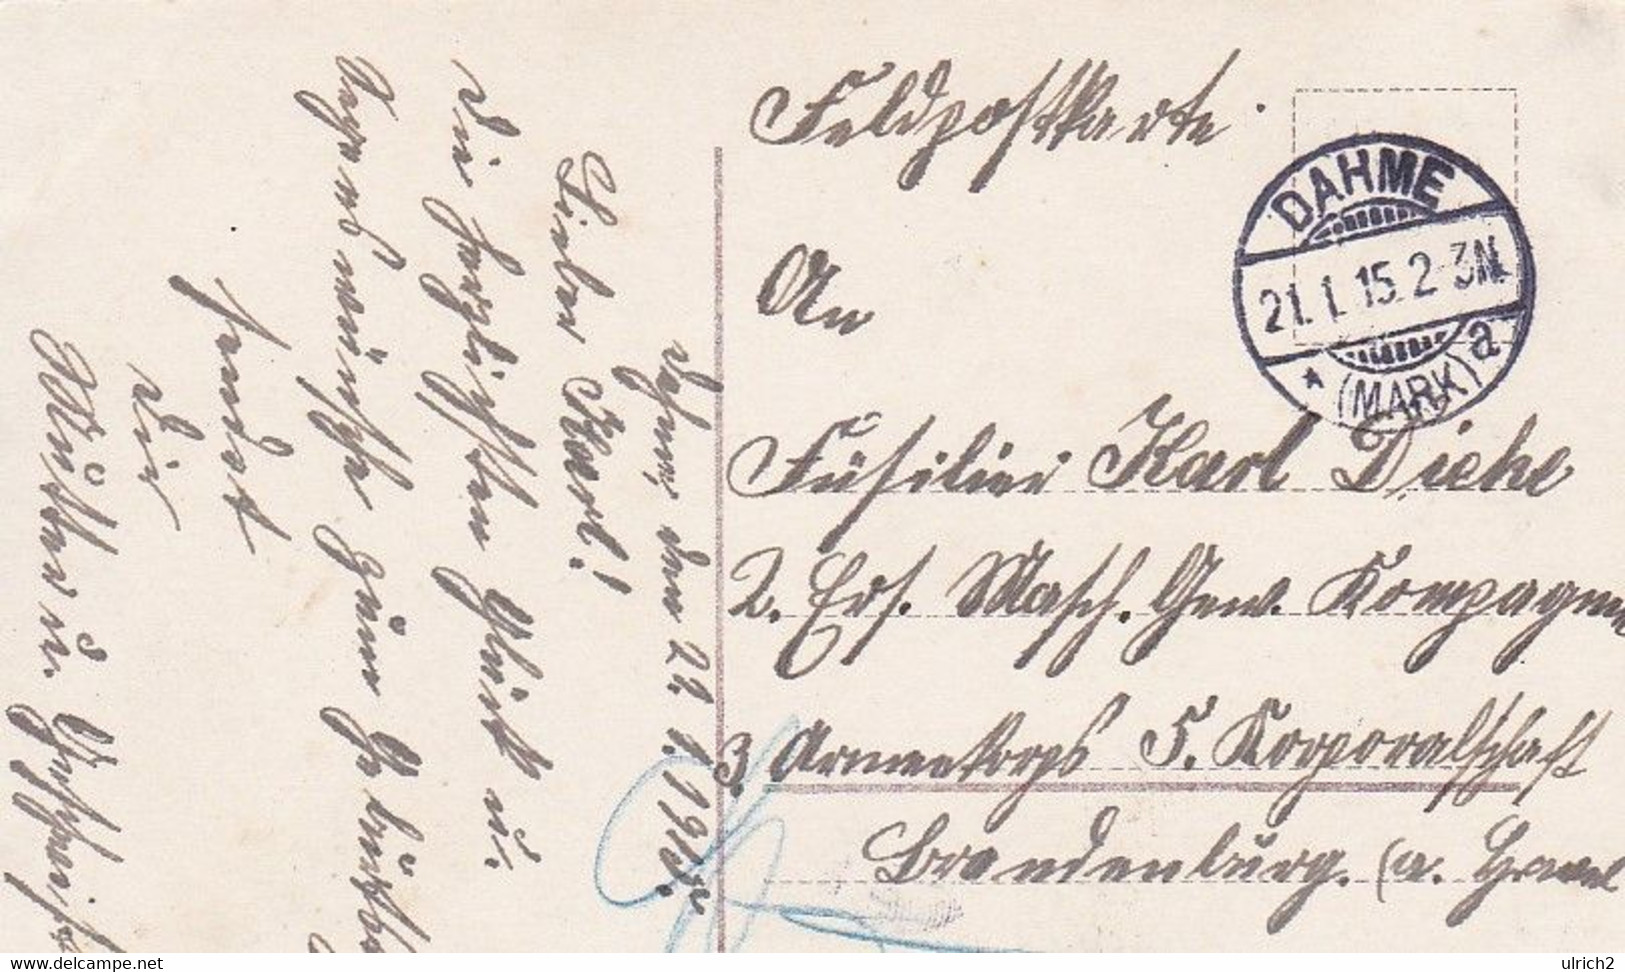 Feldpostkarte.
An
Füsilier Karl Dieke
2. Ers. Masch. Gew. Kompagnie
3. Armeekorps 5. Korporalschaft
Brandenburg. (a. Havel
DAHME
21.1.15.2-3N.
* (MARK) a
Dahme, den 21.1.1915.
Lieber Karl!
Die herzlichsten Glück u.
Segenswünsche zum Geburts
sendet
Dir
Mutter u. Geschwist
delcampe.net
ulrich2